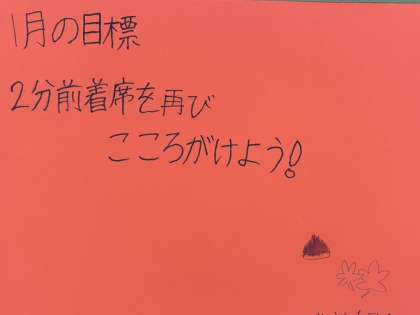 1月の目標
2分前着席を再び
こころがけよう!